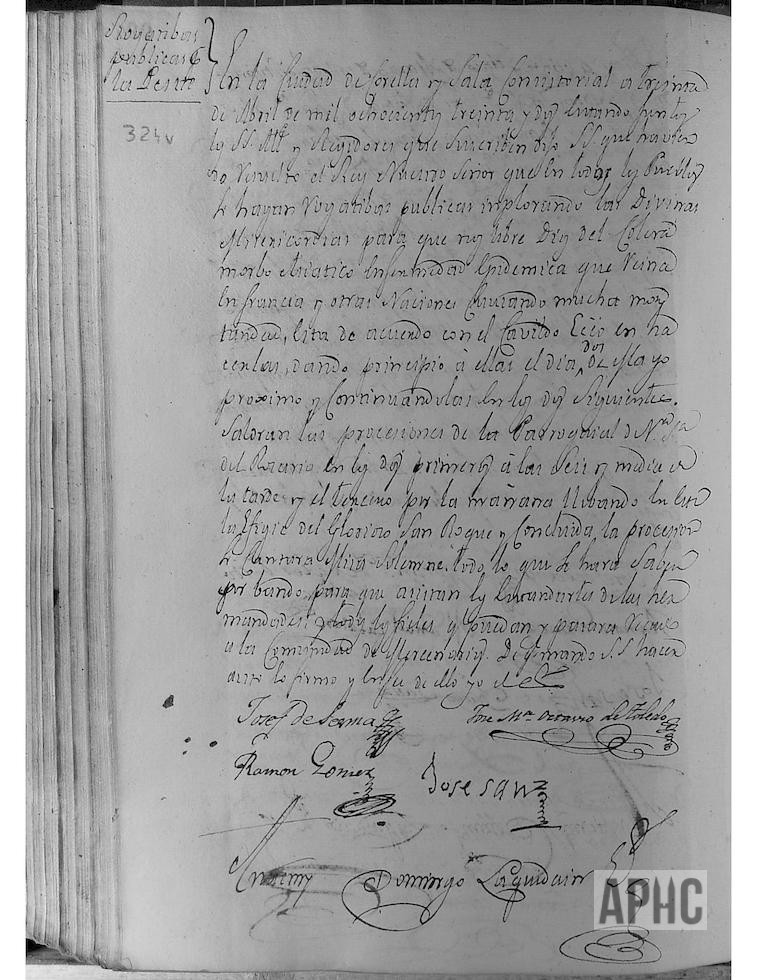 Rogatibas
publicas p.r
la Peste
324v
En la Ciudad de Corella y Sala Consistorial a treinta
de Abril de mil ochocientos treinta y dos estando juntos
los SS. Alc.e y Regidores que suscriben dijo SS. que havien
do resuelto el Rey Nuestro Señor que en todos los Pueblos
se hagan Rogatibas publicas implorando las Divinas
Misericordias para que nos libre Dios del Colera
morbo Asiatico enfermedad Epidemica que Reina
en Francia y otras Naciones Causando mucha mor
tandad, esta de acuerdo con el Cavildo Ecco en ha
cerlas, dando principio á ellas el dia dos de Mayo
proximo y Continuandolas en los dos Siguientes.
Saldran las procesiones de la Parroquial de N.ra S.ra
del Rosario en los dos primeros á las Seis y media de
la tarde y el tercero por la mañana llebando en este
la Efigie del Glorioso San Roque y Concluida la procesion
se Cantara Misa Solemne. todo lo que se hara Saber
por bando para que asistan los Estandartes de las her
mandades y todos los fieles q puedan y pasara Recado
a la Comunidad de Mercenarios. De q mando S.S. hacer
auto lo firmo y en fee de ello yo el Es.no
Josef de Sesma
Jose M.a Octavio de Toledo
Ramon Gomez
Jose Sanz
Antemy
Domingo Laquidain
APHC